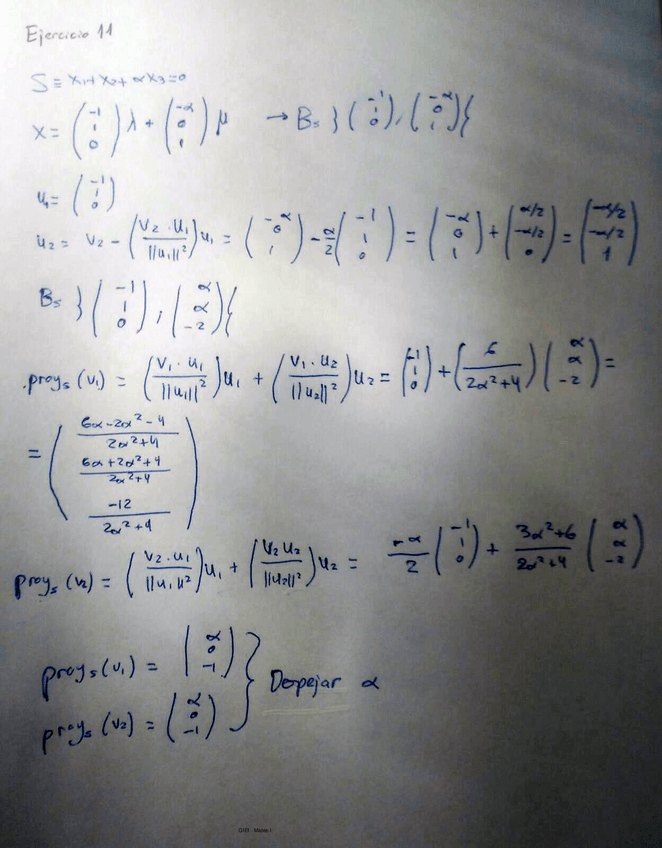 Ejercicio 11
S ≡ x₁ + x₂ + αx₃ = 0
x = (-1 1 0) λ + (-α 0 1) μ → Bs } (-1 1 0), (-α 0 1) {
u₁ = (-1 1 0)
u₂ = v₂ - (v₂ · u₁ / ||u₁||²) u₁ = (-α 0 1) - α/2 (-1 1 0) = (-α 0 1) + (α/2 -α/2 0) = (-α/2 -α/2 1)
Bs } (-1 1 0), (α α -2) {
proys (v₁) = (v₁ · u₁ / ||u₁||²) u₁ + (v₁ · u₂ / ||u₂||²) u₂ = (-1 1 0) + (6 / 2α²+4) (α α -2) =
= (6α-2α²-4 / 2α²+4 6α+2α²+4 / 2α²+4 -12 / 2α²+4)
proys (v₂) = (v₂ · u₁ / ||u₁||²) u₁ + (v₂ u₂ / ||u₂||²) u₂ = -α/2 (-1 1 0) + 3α²+6 / 2α²+4 (α α -2)
proys (v₁) = (α 0 -1)
proys (v₂) = (α 0 -1) } Depejar α